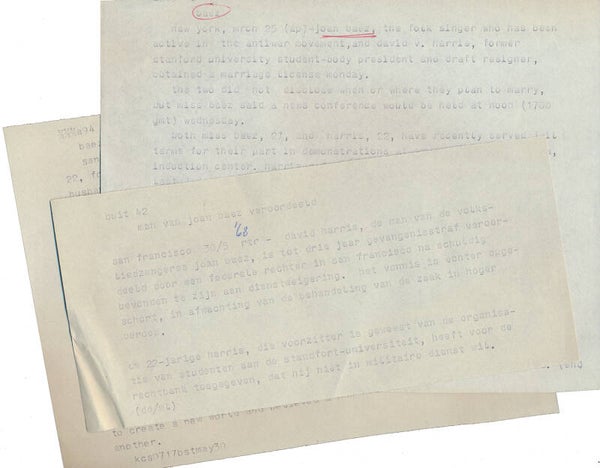 baez
new york, mrch 25 (ap)-joan baez, the folk singer who has been
active in the antiwar movement,and david v. harris, former
stanford university student-body president and draft resigner,
obtained a marriage license monday.
the two did not disclose when or where they plan to marry,
but miss baez said a news conference would be held at noon (1700
gmt) wednesday.
both miss baez, 27, and harris, 22, have recently served jail
terms for their part in demonstrations at
induction center.
494
bae
san
22, fo
husba
buit 42
man van joan baez veroordeeld
'68
san francisco 30/5 rtr - david harris, de man van de volks-
liedzangeres joan baez, is tot drie jaar gevangenisstraf veroor-
deeld door een federale rechter in san francisco na schuldig
bevonden te zijn aan dienstweigering. het vonnis is echter opge-
schort, in afwachting van de behandeling van de zaak in hoger
beroep.
de 22-jarige harris, die voorzitter is geweest van de organisa-
tie van studenten aan de standfort-universiteit, heeft voor de
rechtbank toegegeven, dat hij niet in militaire dienst wil.
(dd/mt)
to create a new world and believed
another.
kcs0717bstmay30